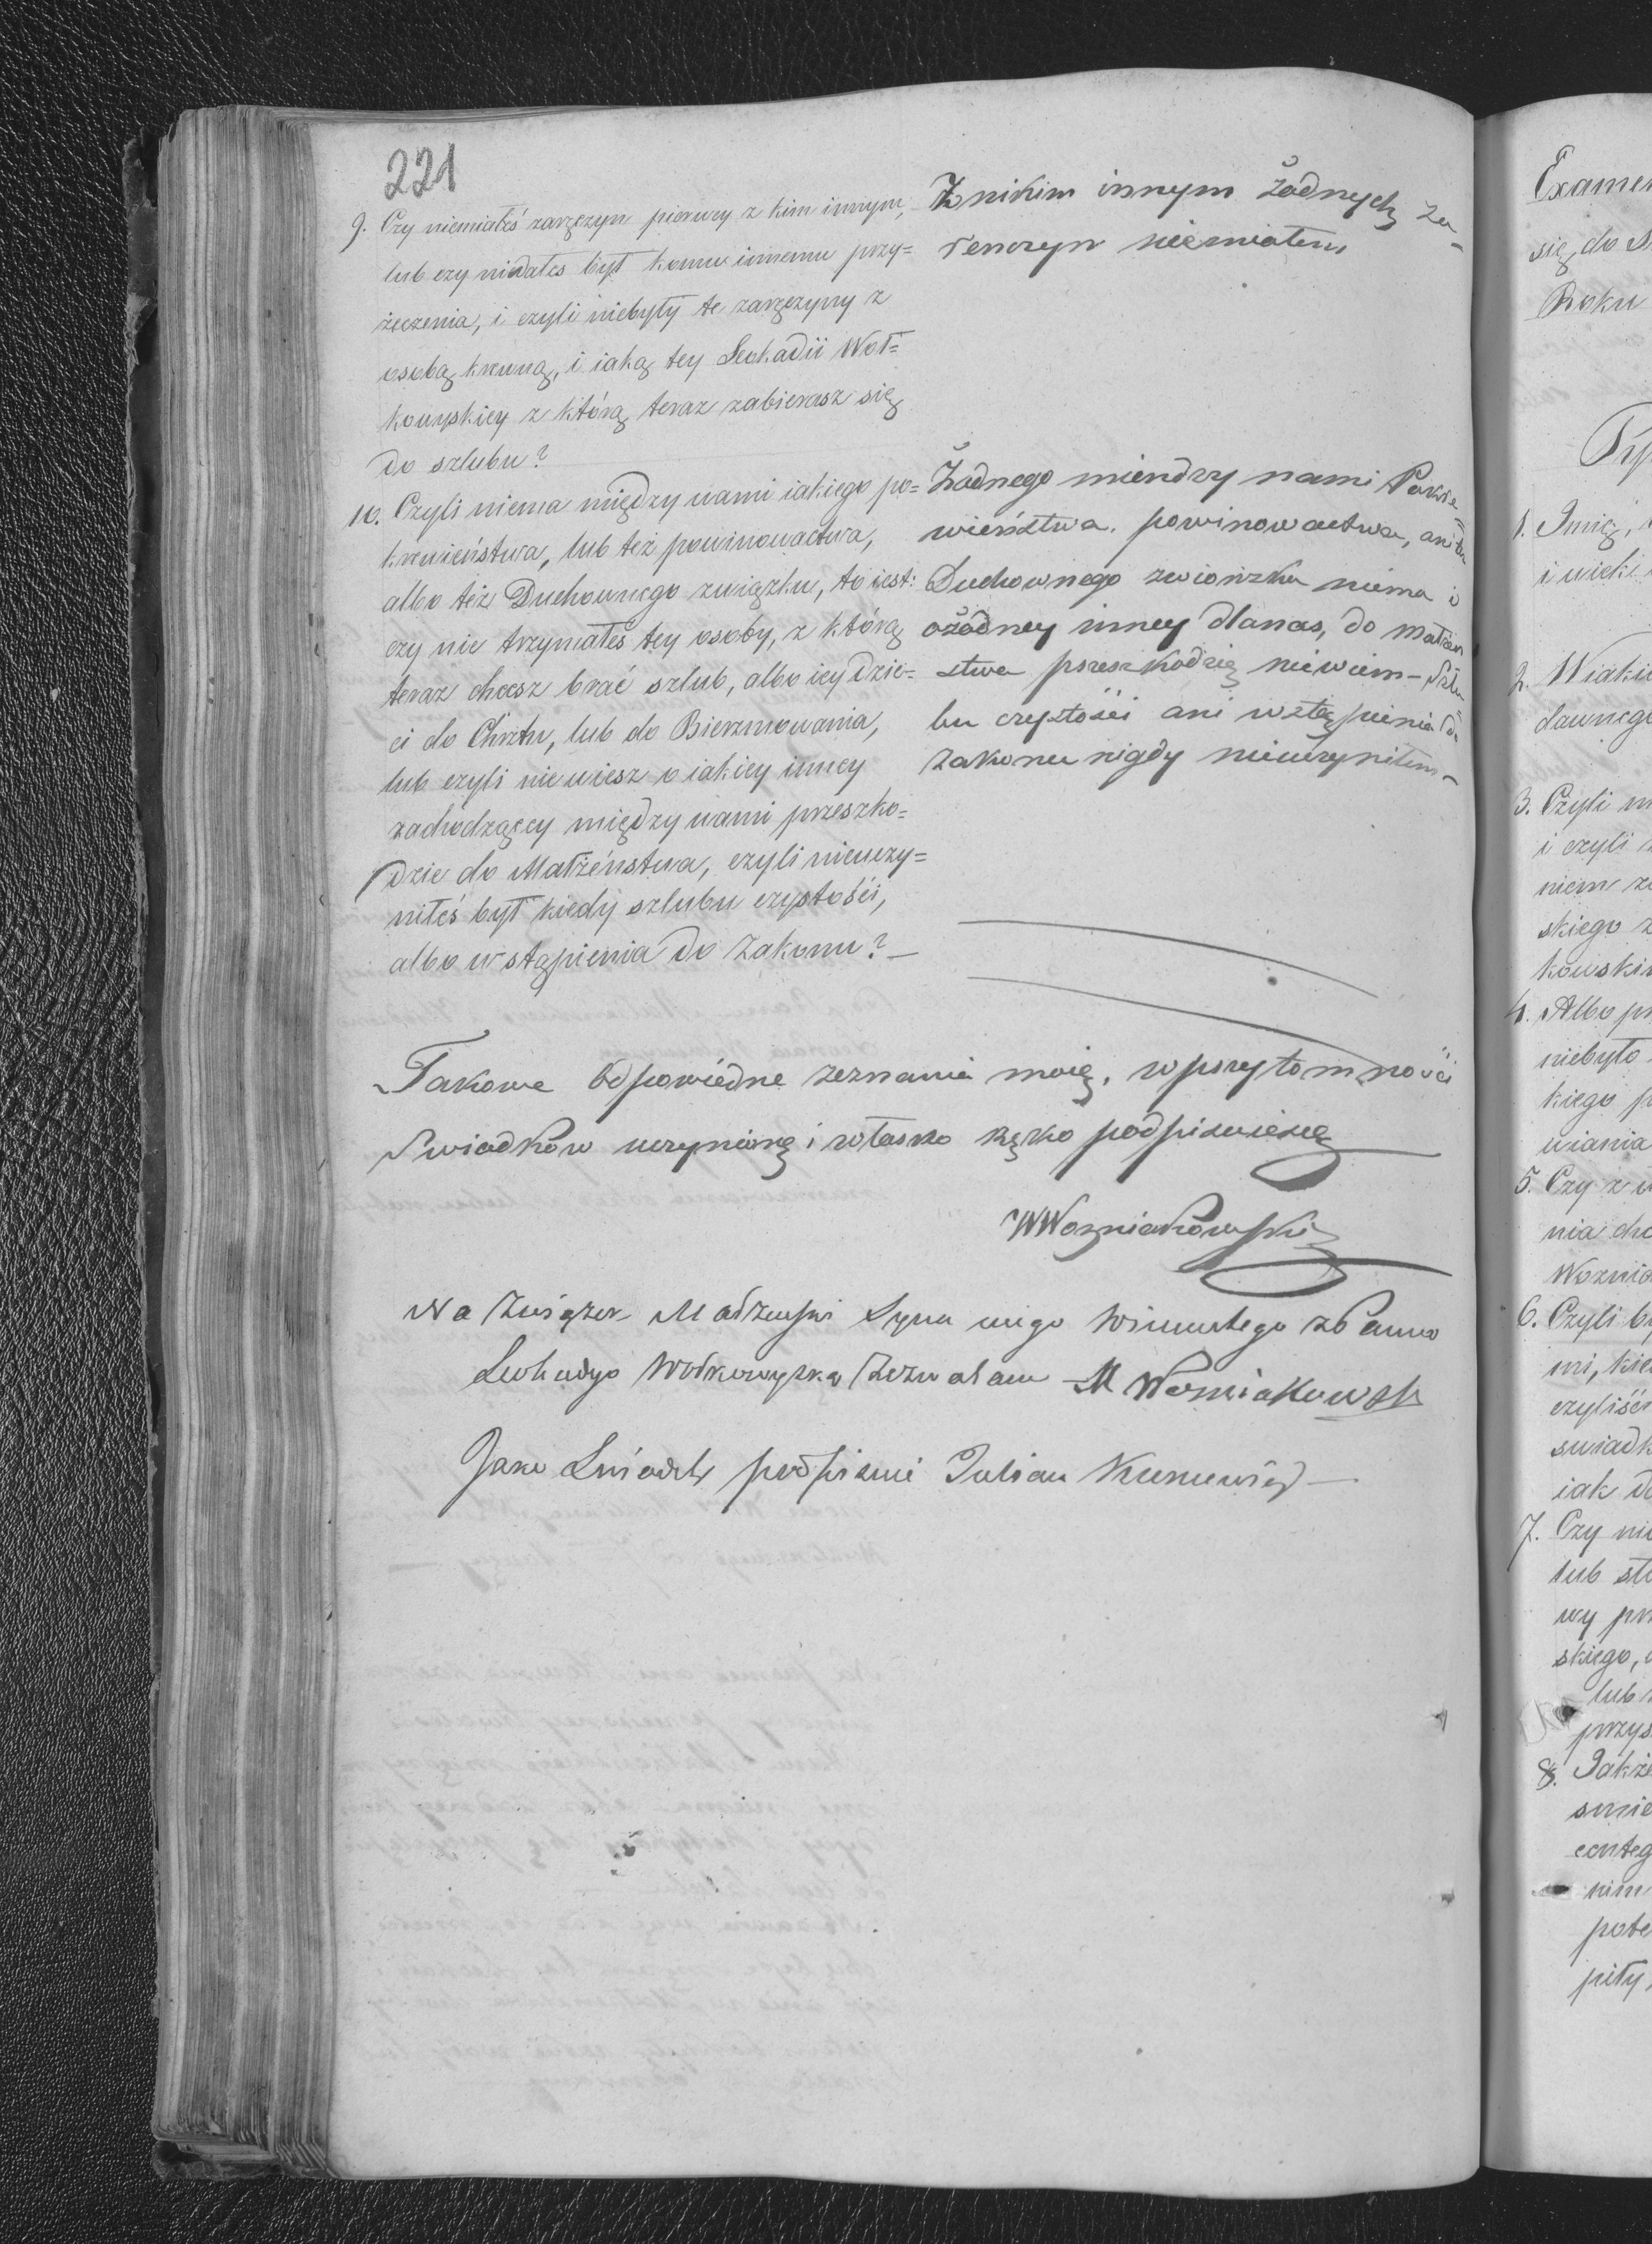 221
9. Czy niemiałeś zaręczyn pierwey z kim innym,
lub czy niedałes był komu innemu przy=
żeczenia, i czyli niebyły te zaręczyny z
osobą krewną, i iaką tey Leokadii Woł=
kowyskiey z którą teraz zabierasz się
do szlubu?
Z nikim innym żadnych za=
renczyn niemiałem
10. Czyli niema między wami iakiego po=
krewieństwa, lub też powinowactwa,
albo też Duchownego związku, to iest:
czy nie trzymałeś tey osoby, z którą
teraz chcesz brać szlub, albo iey dzie=
ci do Chrztu, lub do Bierzmowania,
lub czyli nie wiesz o iakiey inney
zachodzącey między wami przeszko=
dzie do Małżeństwa, czyli nieuczy=
niłeś był kiedy szlubu czystości,
albo wstąpienia do Zakonu? —
Żadnego miendzy nami Pokre=
wieństwa, powinowactwa, ani
Duchownego zwionzku niema i
ożadney inney dlanas, do małżen
stwa przeszkodzie niewiem – Szlu=
bu czystości ani wstąpienia do
zakonu nigdy nieuczyniłem –
Takowe odpowiedne zeznanie moię, wprzytomności
Swiadków uczynionę i własno ręko podpisuię
W Wozniakowski
Na Związek Małżeński Syna mego Wincentego z Panno
Leokadyo Wołkowysko Zezwalam M Wozniakowski
Jako Swiadek podpisuie Julian
Examen
się do
Roku
1. Imię,
i wiek
2. W iakie
dawnego
3. Czyli
i czyli
niem
skiego
kowskim
4. Albo
niebyło
kiego
wiania
5. Czy z
nia
Woznia
6. Czyli
mi,
czyliści
swiadk
iak
7. Czy nie
lub
wy
skiego,
lub
przys
8. Jakże
nim